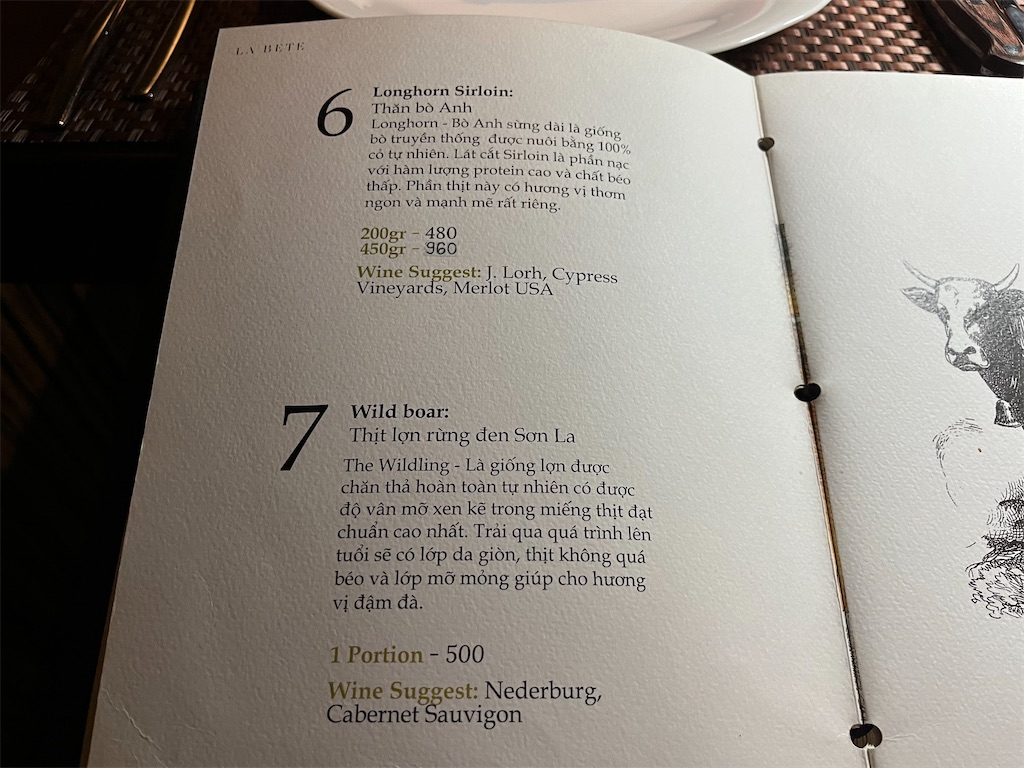 LA BETE
6
Longhorn Sirloin:
Thăn bò Anh
Longhorn - Bò Anh sừng dài là giống
bò truyền thống được nuôi bằng 100%
cỏ tự nhiên. Lát cắt Sirloin là phần nạc
với hàm lượng protein cao và chất béo
thấp. Phần thịt này có hương vị thơm
ngon và mạnh mẽ rất riêng.
200gr - 480
450gr - 960
Wine Suggest: J. Lorh, Cypress
Vineyards, Merlot USA
7
Wild boar:
Thịt lợn rừng đen Sơn La
The Wildling - Là giống lợn được
chăn thả hoàn toàn tự nhiên có được
độ vân mỡ xen kẽ trong miếng thịt đạt
chuẩn cao nhất. Trải qua quá trình lên
tuổi sẽ có lớp da giòn, thịt không quá
béo và lớp mỡ mỏng giúp cho hương
vị đậm đà.
1 Portion - 500
Wine Suggest: Nederburg,
Cabernet Sauvigon